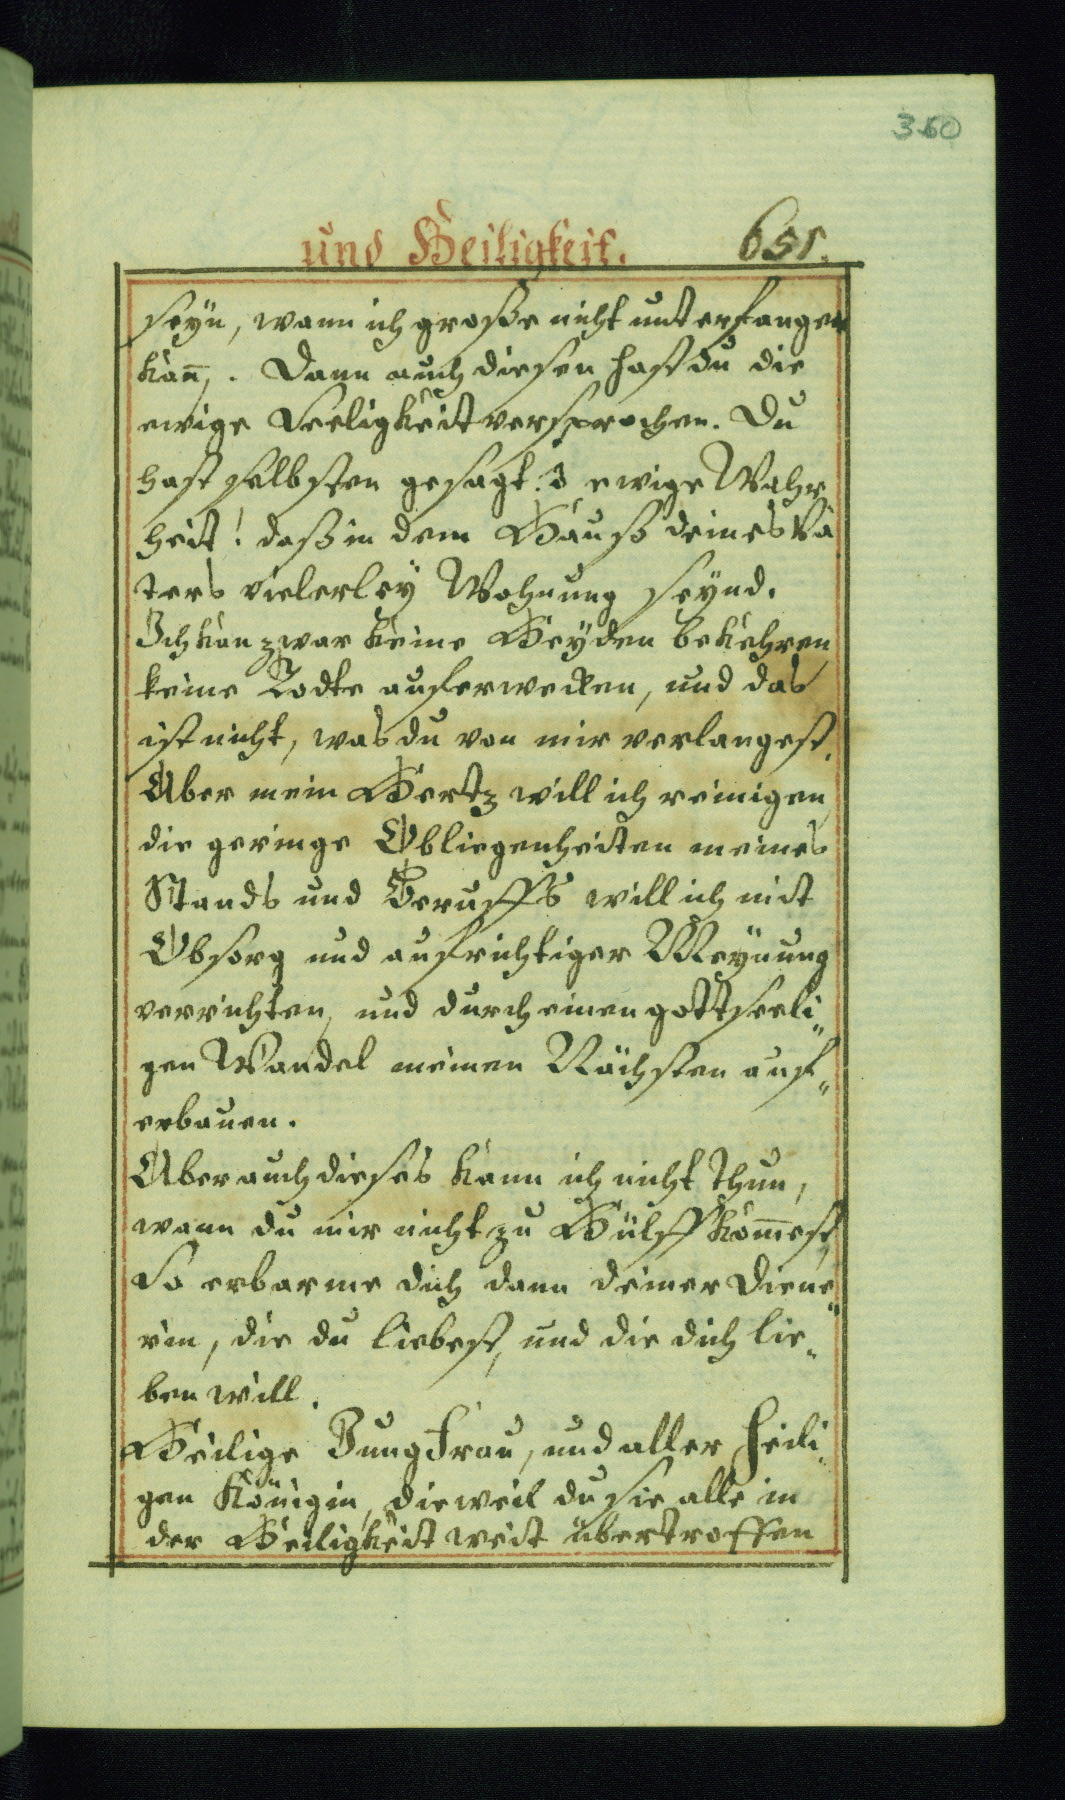 360
und Heiligkeit. 651.
seyn, wann ich grosse nicht unterfangen
kan̄. Dann auch diesen hast du die
ewige Seeligkeit versprochen. Du
hast selbsten gesagt: O ewige Wahr
heit! daß in dem Hauß deines Va
ters vielerley Wohnung seynd.
Ich kan zwar keine Heyden bekehren
keine Todte auferwecken, und das
ist nicht, was du von mir verlangest.
Aber mein Hertz will ich reinigen
die geringe Obliegenheiten meines
Stands und Beruffs will ich mit
Obsorg und aufrichtiger Meynung
verrichten, und durch einen gottseeli„
gen Wandel meinen Nächsten auf„
erbauen.
Aber auch dieses kann ich nicht thun,
wann du mir nicht zu Hülff kom̄est,
So erbarme dich dann deiner Diene„
rin, die du liebest, und die dich lie„
ben will.
Heilige Jungfrau, und aller Heili„
gen Königin, dieweil du sie alle in
der Heiligkeit weit übertroffen